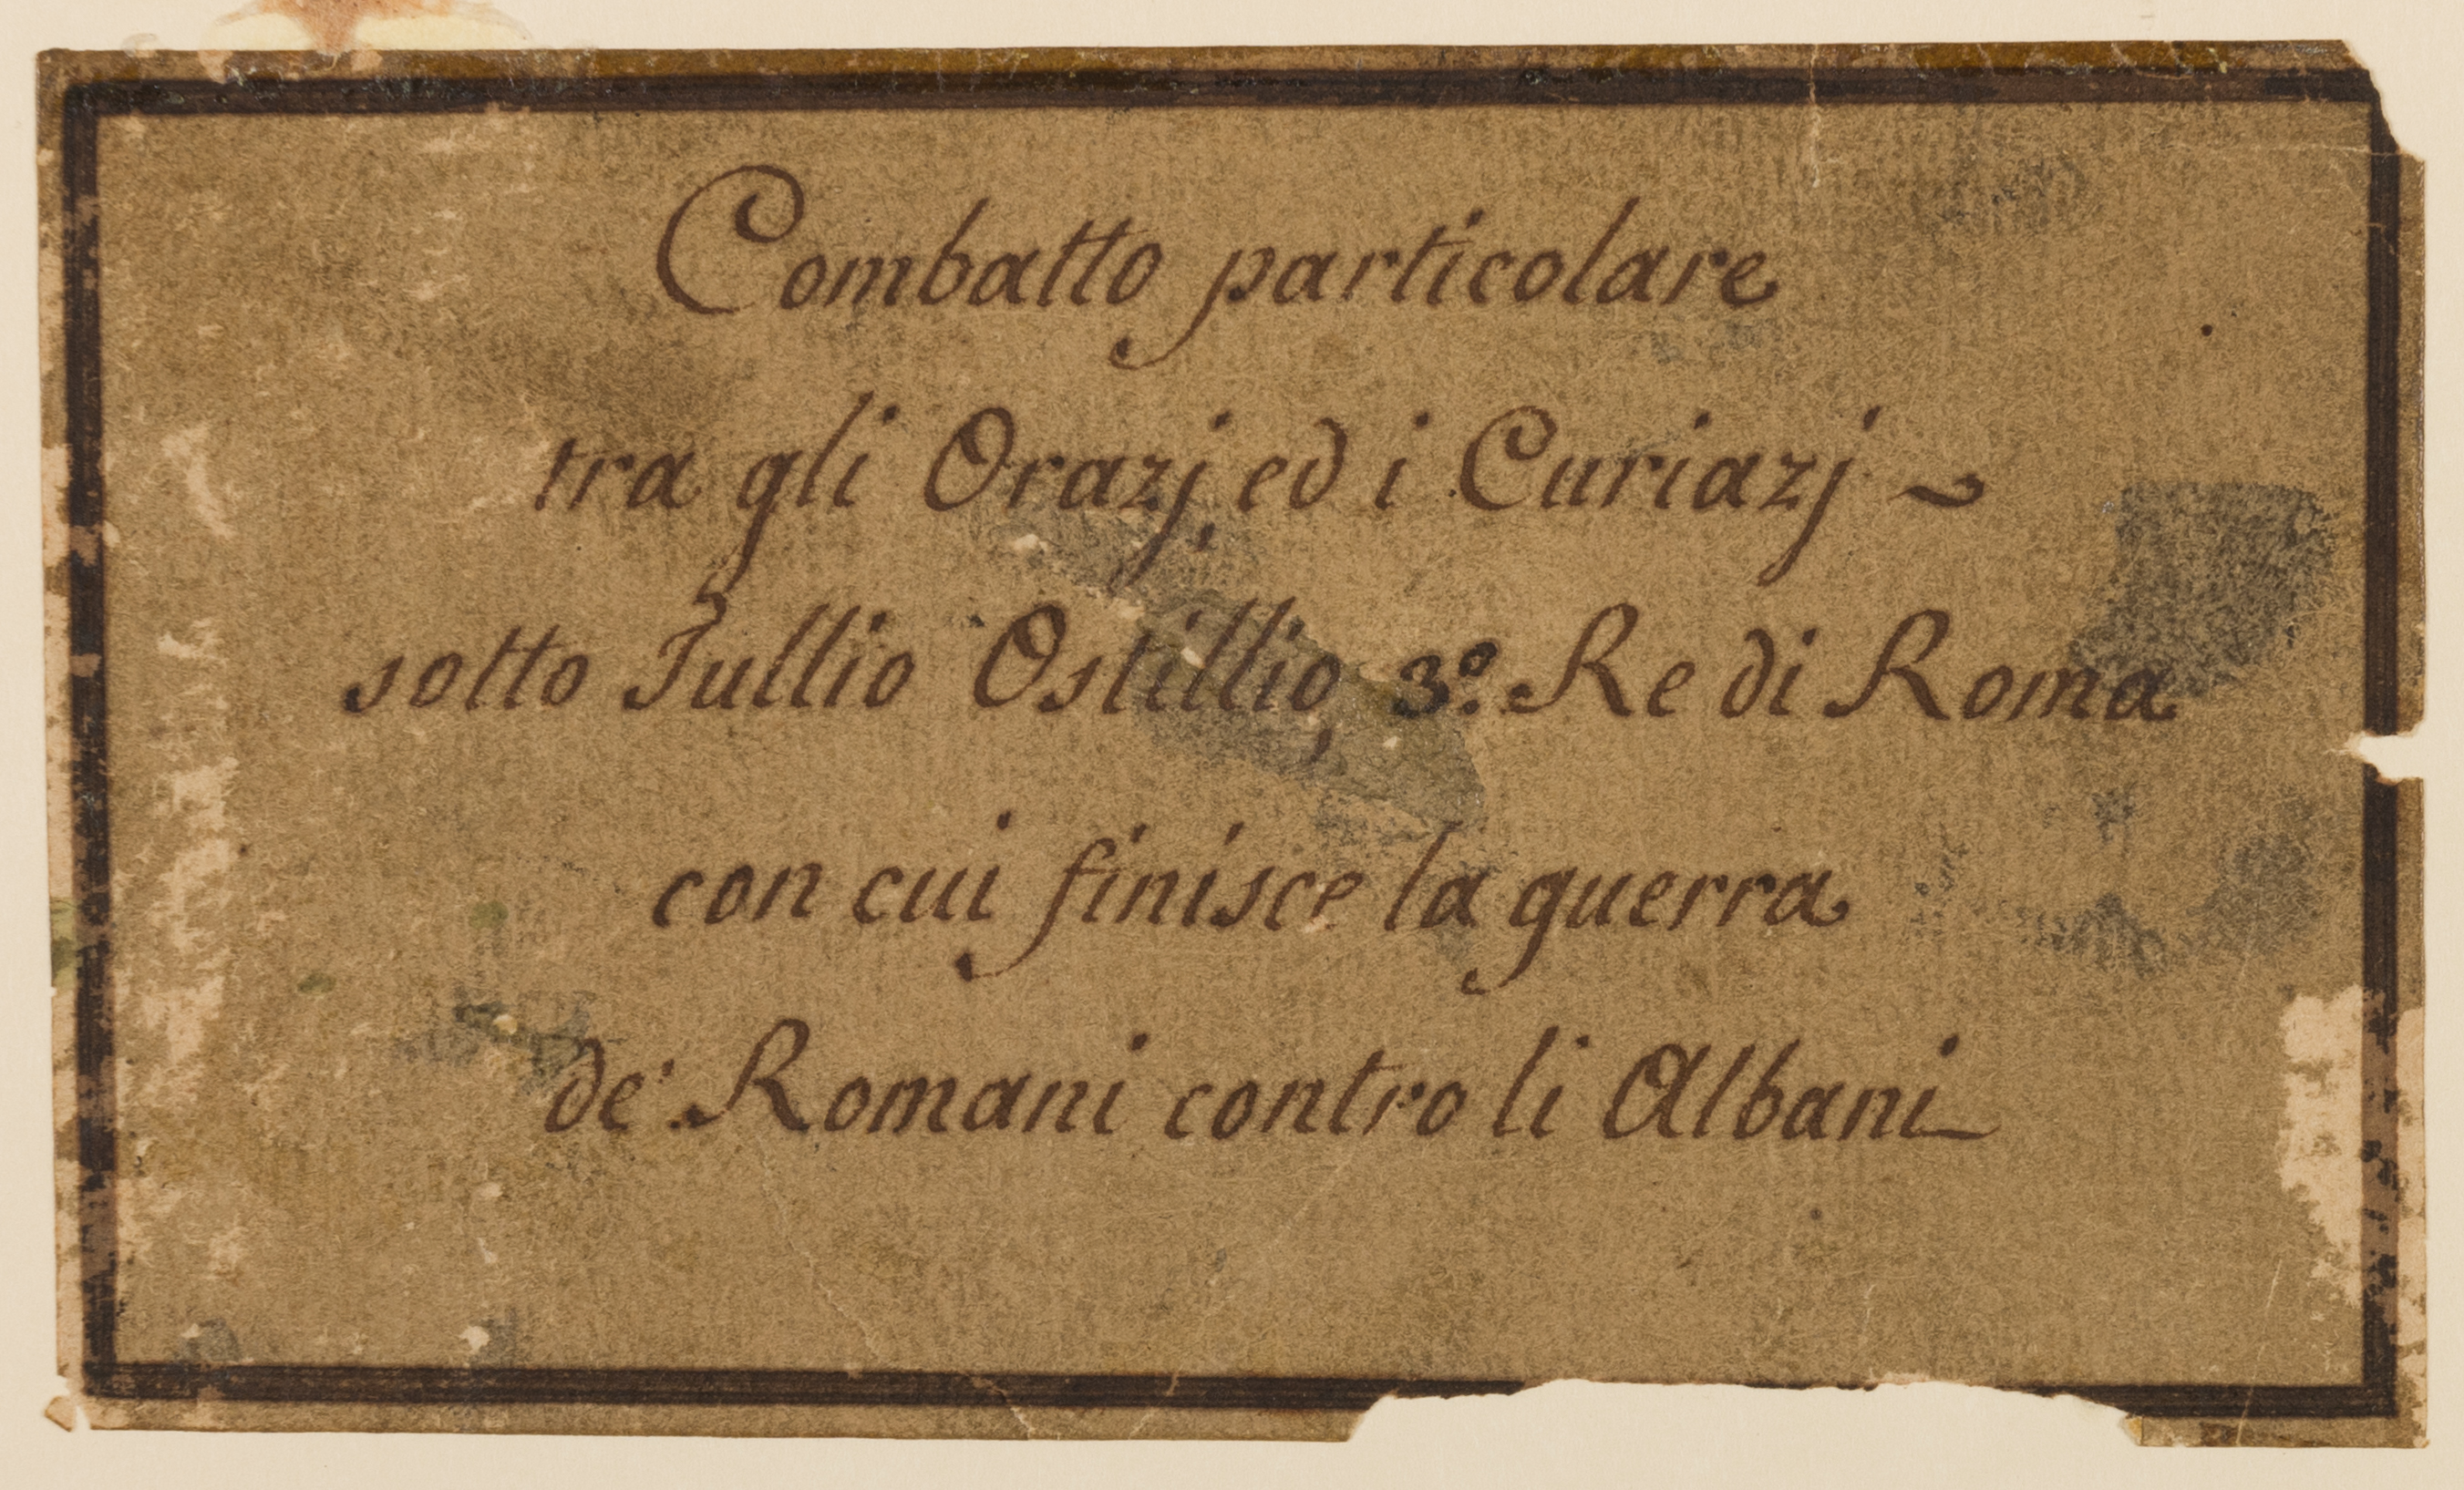 Combatto particolare
tra gli Orazj, ed i Curiazj ~
sotto Tullio Ostillio, 3º. Re di Roma
con cui finisce la guerra
de' Romani contro li Albani